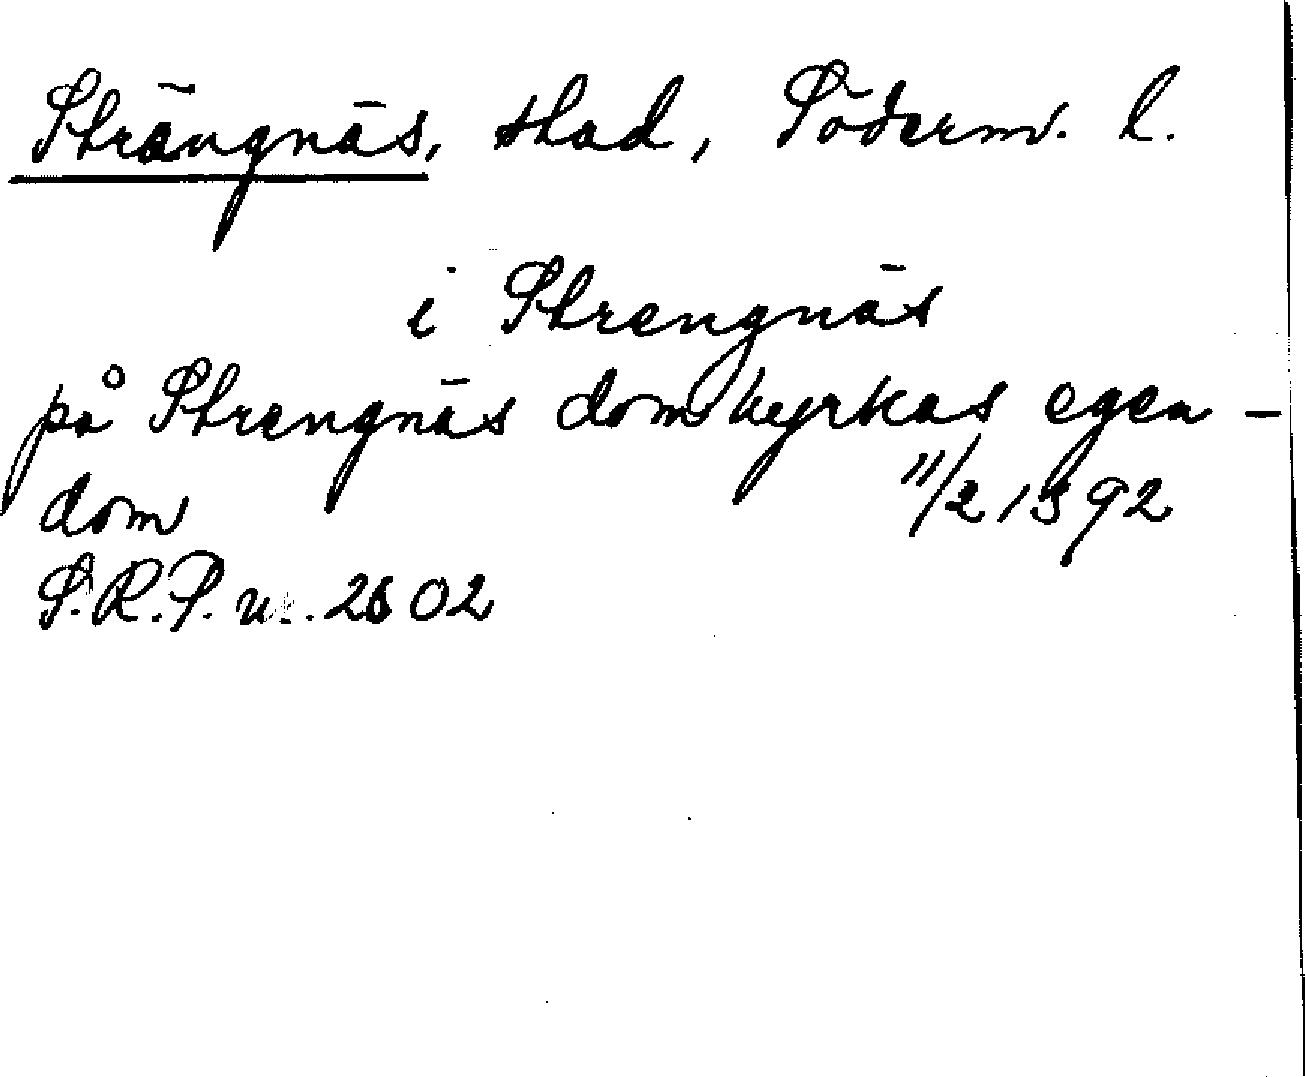 Strängnäs, stad, Söderm. l.
i Strengnäs
på Strengnäs domkyrkas egen-
dom 11/2 1392
S.R.P. nr. 2602